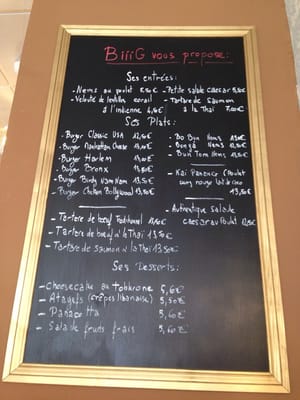 BiiiG vous propose:
Ses entrées:
- Nems au poulet 5,50€ - Petite salade caesar
- Velouté de lentilles corail - Tartare de Saumon
à l'indienne à la Thaï
Ses Plats:
- Burger Classic USA 12,50€
- Burger Manhattan Cheese
- Burger Harlem
- Burger Bronx
- Burger
- Burger Chicken Bollywood 13,50€
- Bo Bun Nems
- Nems
- Bun Tom Nems
- Kai (Poulet
curry rouge
13,50€
- Authentique Salade
caesar au Poulet
- Tartare de boeuf Traditionnel
- Tartare de boeuf à la Thaï 13,50€
- Tartare de saumon à la Thaï 13,50€
Ses Desserts:
- cheesecake au toblerone 5,60€
- Atayefs (crêpes libanaises) 5,50€
- Panacotta 5,60€
- Salade fruits frais 5,60€